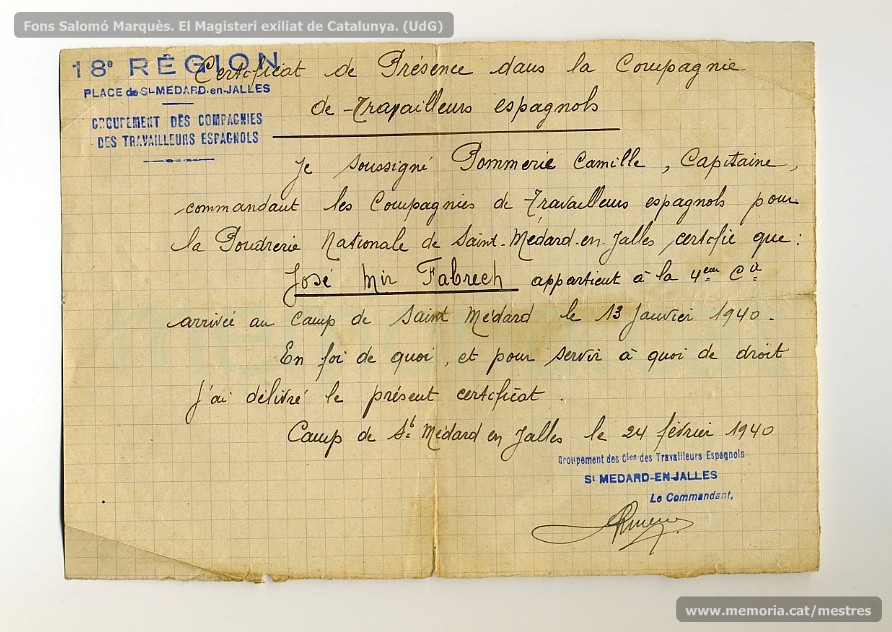 Fons Salomó Marquès. El Magisteri exiliat de Catalunya. (UdG)
18e RÉGION
PLACE de St-MEDARD-en-JALLES
GROUPEMENT DES COMPAGNIES
DES TRAVAILLEURS ESPAGNOLS
Certificat de Présence dans la Compagnie
de Travailleurs espagnols
Je soussigné Pommerie Camille, Capitaine,
commandant les Compagnies de Travailleurs espagnols pour
la Poudrerie Nationale de Saint-Médard-en-Jalles certifie que :
José Mir Fabrech appartient à la 4eme Cie
arrivée au Camp de Saint Médard le 13 Janvier 1940.
En foi de quoi, et pour servir à quoi de droit
j'ai délivré le présent certificat.
Camp de St Médard en Jalles le 24 février 1940
Groupement des Cies des Travailleurs Espagnols
St MEDARD-EN-JALLES
Le Commandant,
www.memoria.cat/mestres